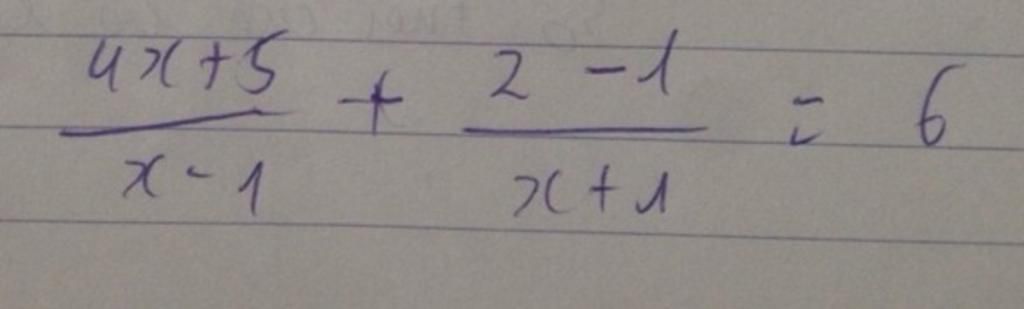 4x+5 / x-1 + 2-1 / x+1 = 6